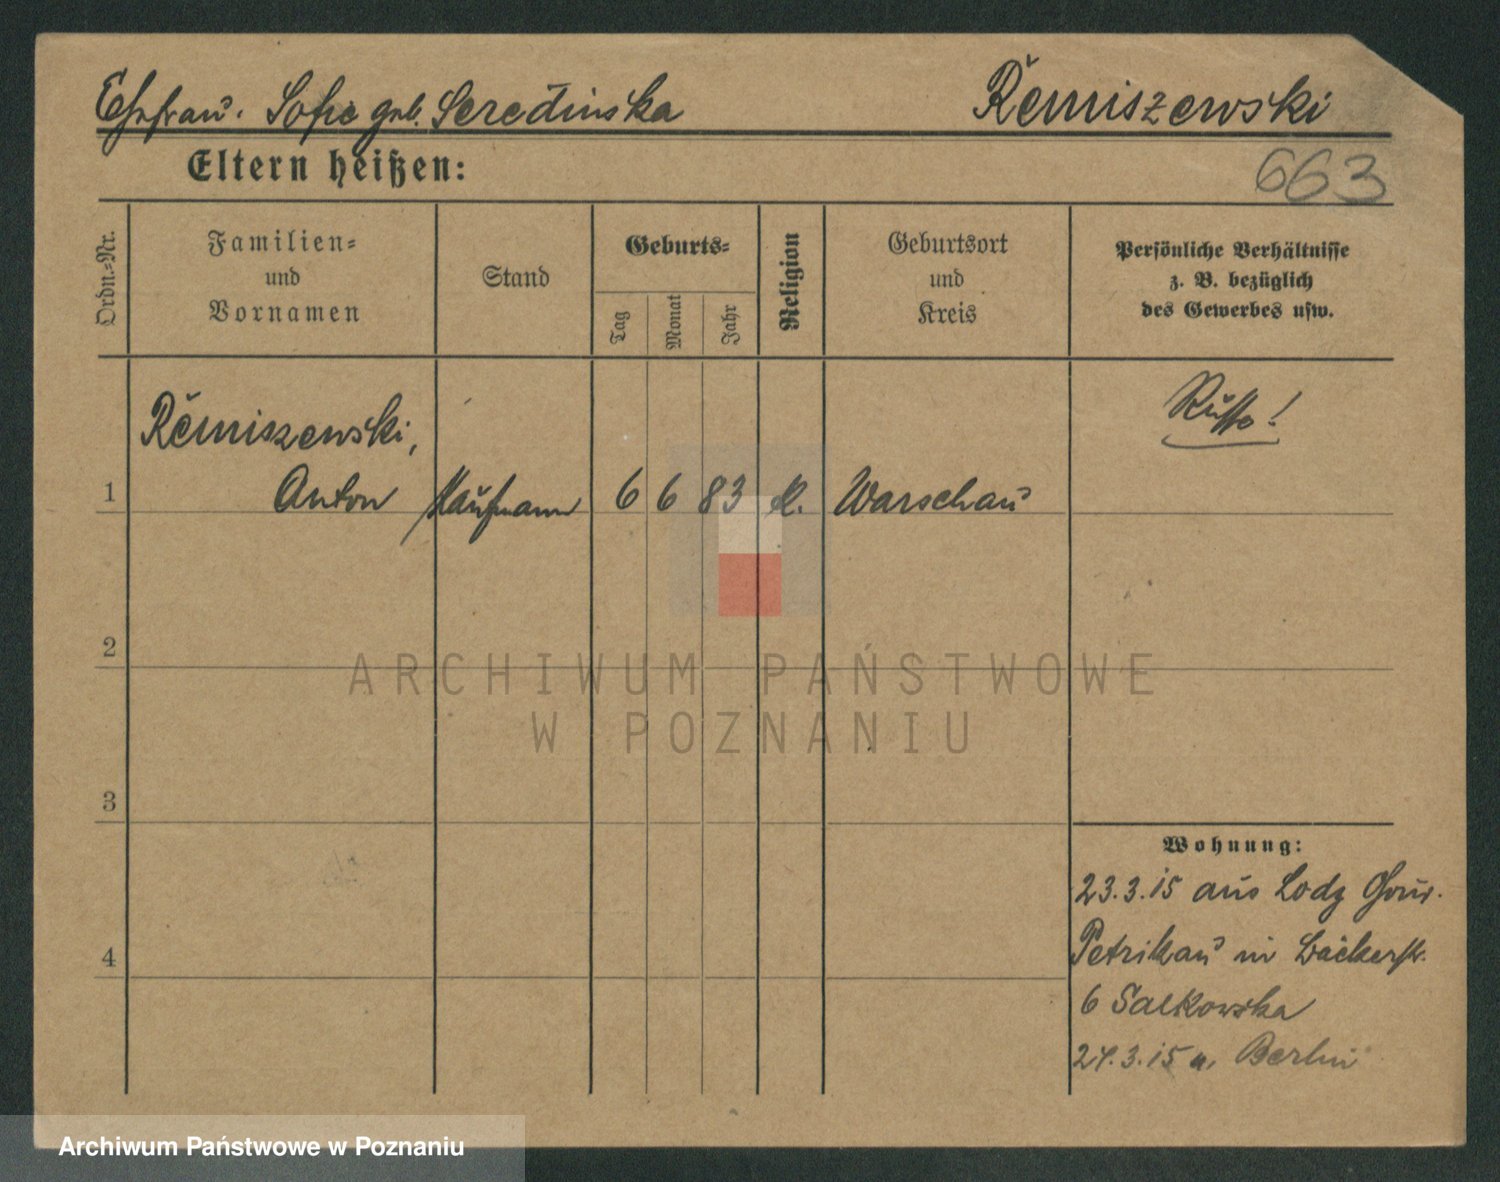 Ehefrau. Sofie geb. Seredinska Remiszewski
Eltern heißen:
663
Ordn.-Nr.
Familien-
und
Vornamen
Stand
Geburts-
Tag
Monat
Jahr
Religion
Geburtsort
und
Kreis
Persönliche Verhältnisse
z. B. bezüglich
des Gewerbes usw.
Remiszewski,
Russe!
1 Anton Kaufmann 6 6 83 k. Warschau
2
ARCHIWUM PAŃSTWOWE
W POZNANIU
3
Wohnung:
23.3.15 aus Lodz Gouv.
4
Petrikau in Bäckerstr.
6 Salkowska
24.3.15 n. Berlin
Archiwum Państwowe w Poznaniu